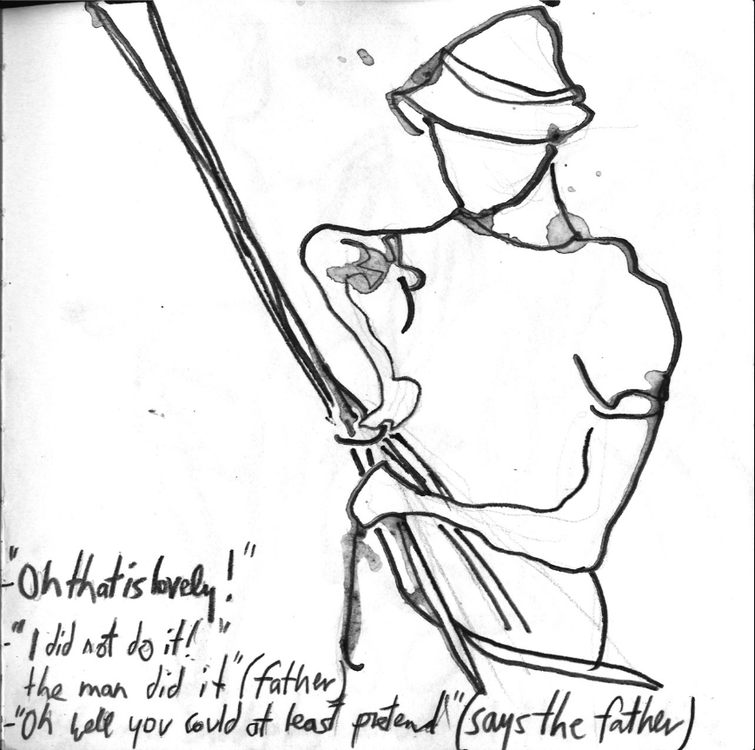 -"Oh that is lovely!"
-"I did not do it!"
the man did it" (father)
-"Oh well you could at least pretend" (says the father)